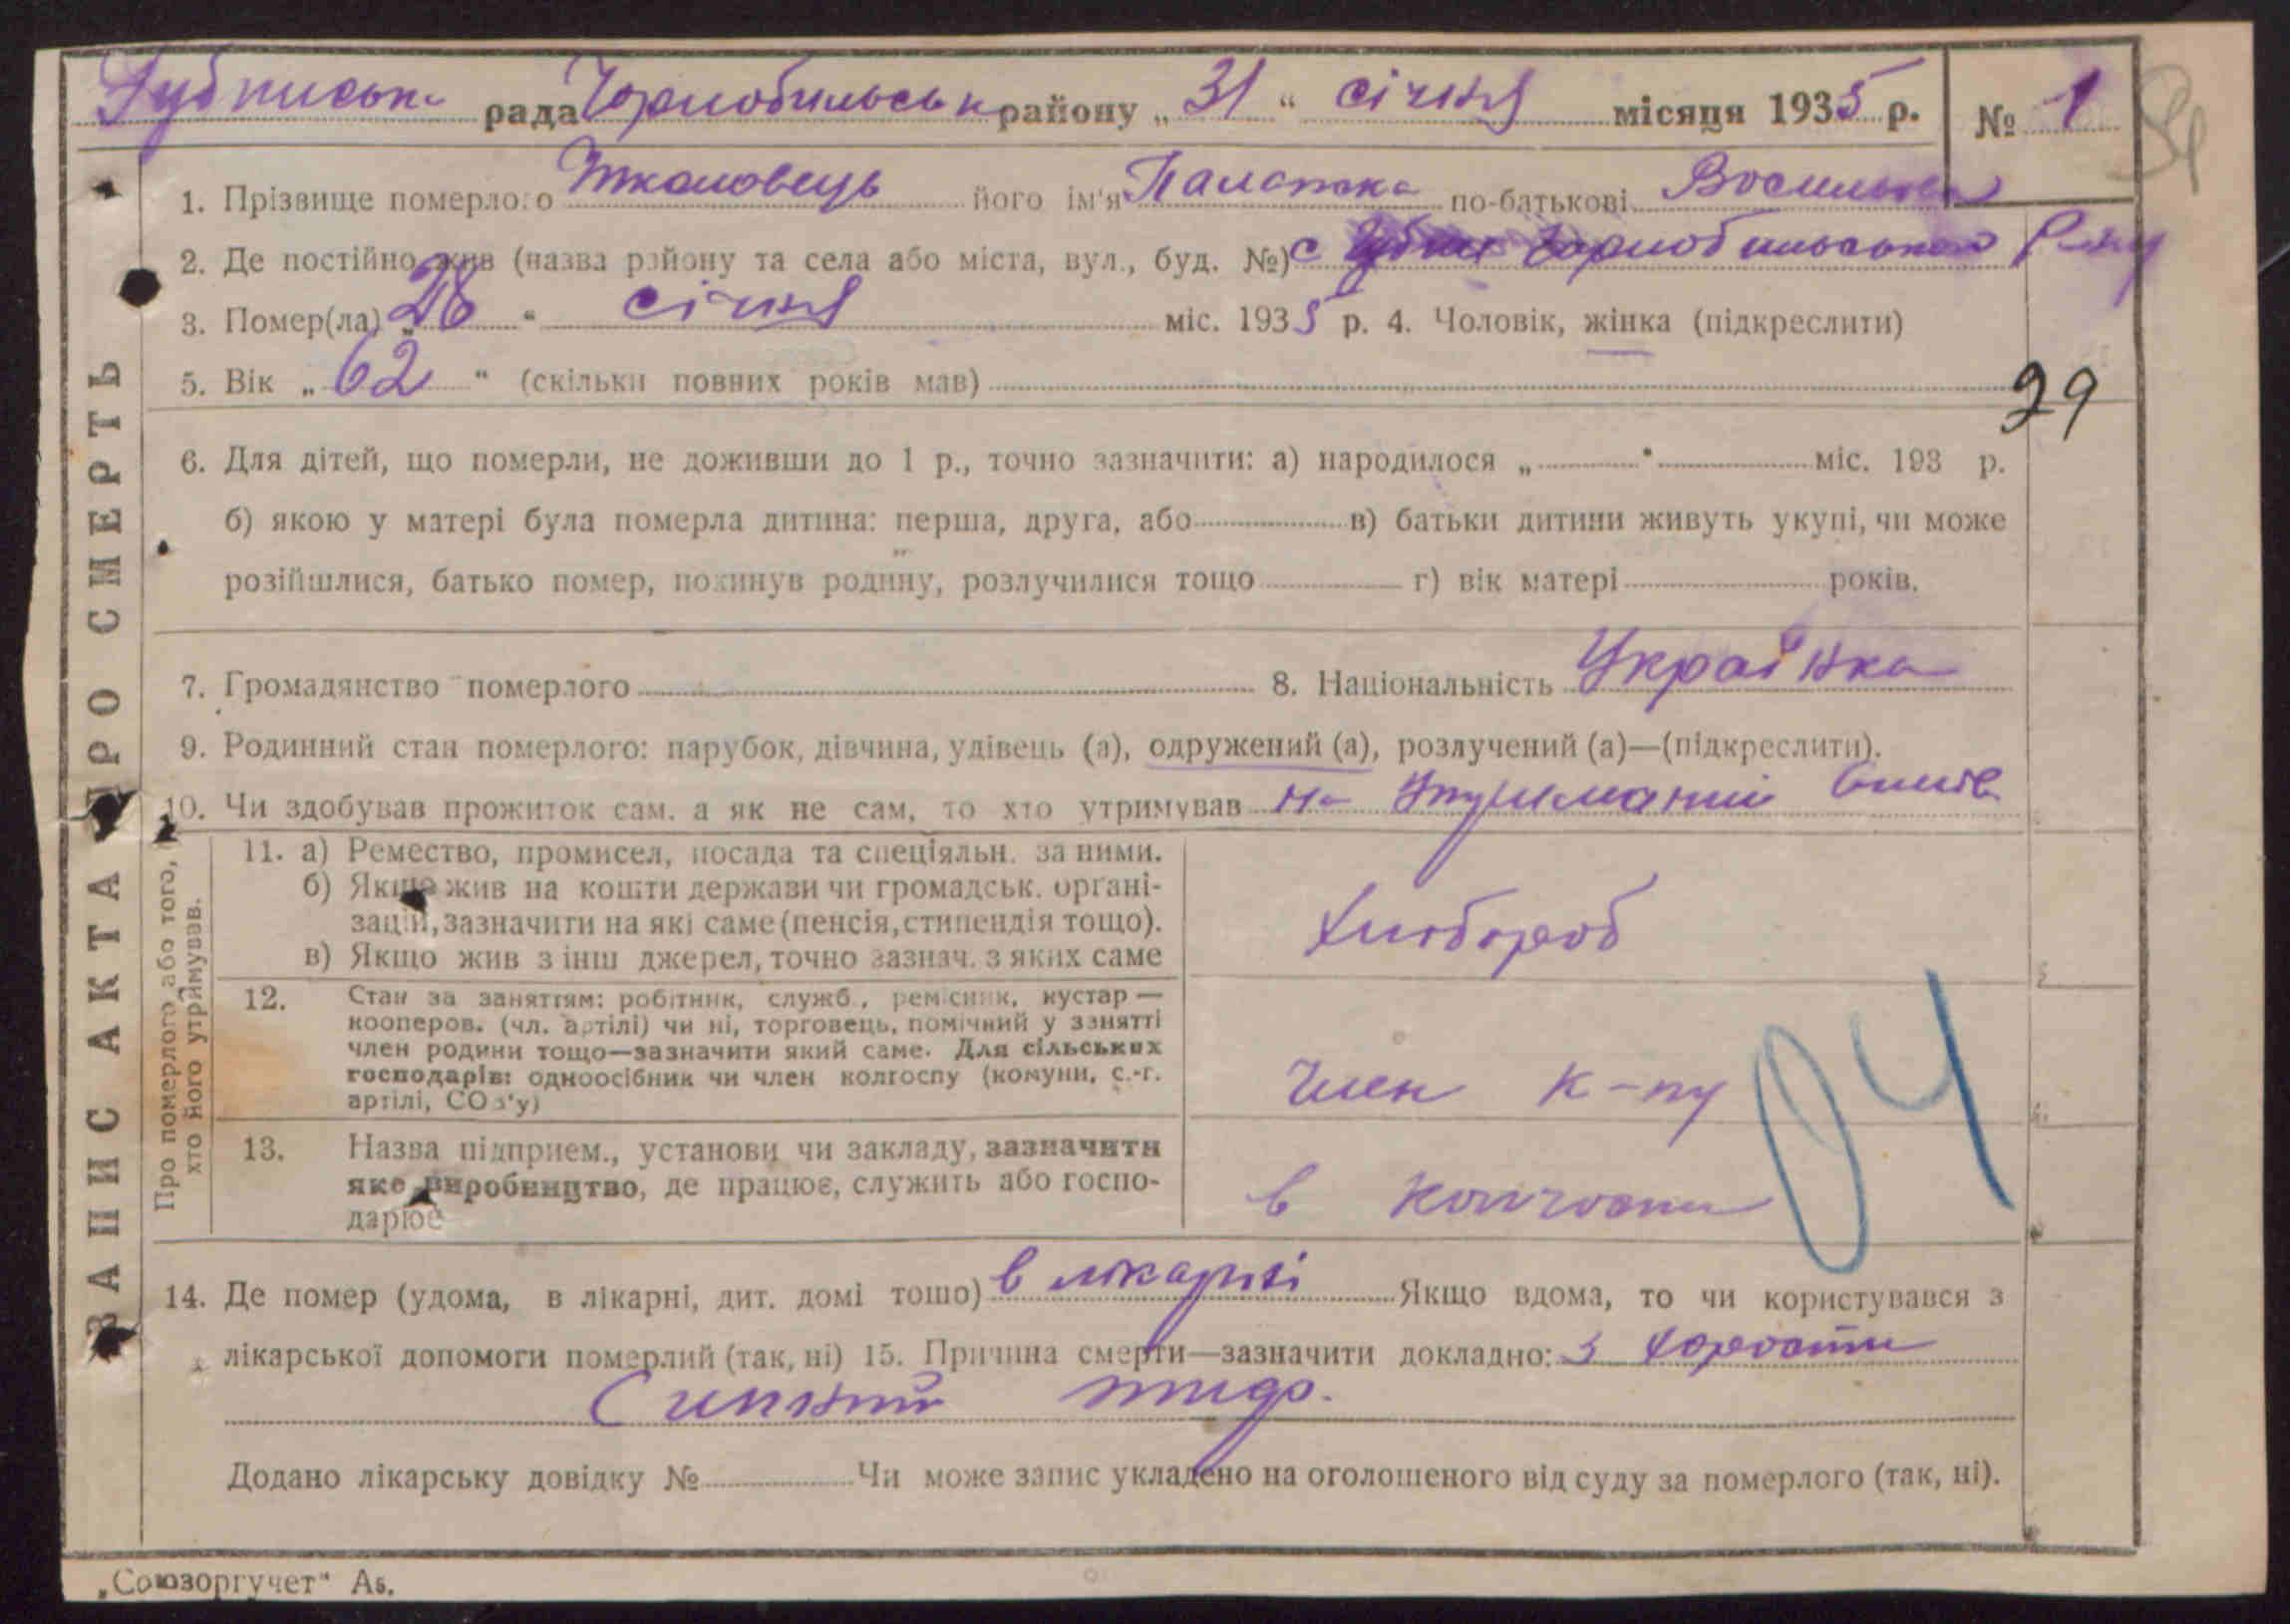 рада Чорнобильськ району „31“ січня місяця 1935 р. № 1
1. Прізвище померлого його ім'я по-батькові
2. Де постійно жив (назва району та села або міста, вул., буд. №) с
3. Помер(ла) „28“ січня міс. 1935 р. 4. Чоловік, жінка (підкреслити)
5. Вік „62“ (скільки повних років мав)
29
6. Для дітей, що померли, не доживши до 1 р., точно зазначити: а) народилося „ “ міс. 193 р.
б) якою у матері була померла дитина: перша, друга, або в) батьки дитини живуть укупі, чи може
розійшлися, батько помер, покинув родину, розлучилися тощо г) вік матері років.
7. Громадянство померлого 8. Національність Українка
9. Родинний стан померлого: парубок, дівчина, удівець (а), одружений (а), розлучений (а)—(підкреслити).
10. Чи здобував прожиток сам, а як не сам, то хто утримував на
ЗАПИС АКТА ПРО СМЕРТЬ
Про померлого або того,
хто його утримував.
11. а) Ремество, промисел, посада та спеціяльн. за ними.
б) Якщо жив на кошти держави чи громадськ. організацій, зазначити на які саме (пенсія, стипендія тощо).
в) Якщо жив з інш джерел, точно зазнач. з яких саме
Хлібороб
12. Стан за заняттям: робітник, служб., ремісник, кустар—
кооперов. (чл. артілі) чи ні, торговець, помічний у занятті
член родини тощо—зазначити який саме. Для сільських
господарів: одноосібник чи член колгоспу (комуни, с.-г.
артілі, СОЗ'у)
Член к-пу
04
13. Назва підприєм., установи чи закладу, зазначити
яке виробництво, де працює, служить або господарює
в колгоспи
14. Де помер (удома, в лікарні, дит. домі тощо) в лікарні Якщо вдома, то чи користувався з
лікарської допомоги померлий (так, ні) 15. Причина смерти—зазначити докладно: з
Сипний тиф.
Додано лікарську довідку № Чи може запис укладено на оголошеного від суду за померлого (так, ні).
„Союзоргучет“ А5.